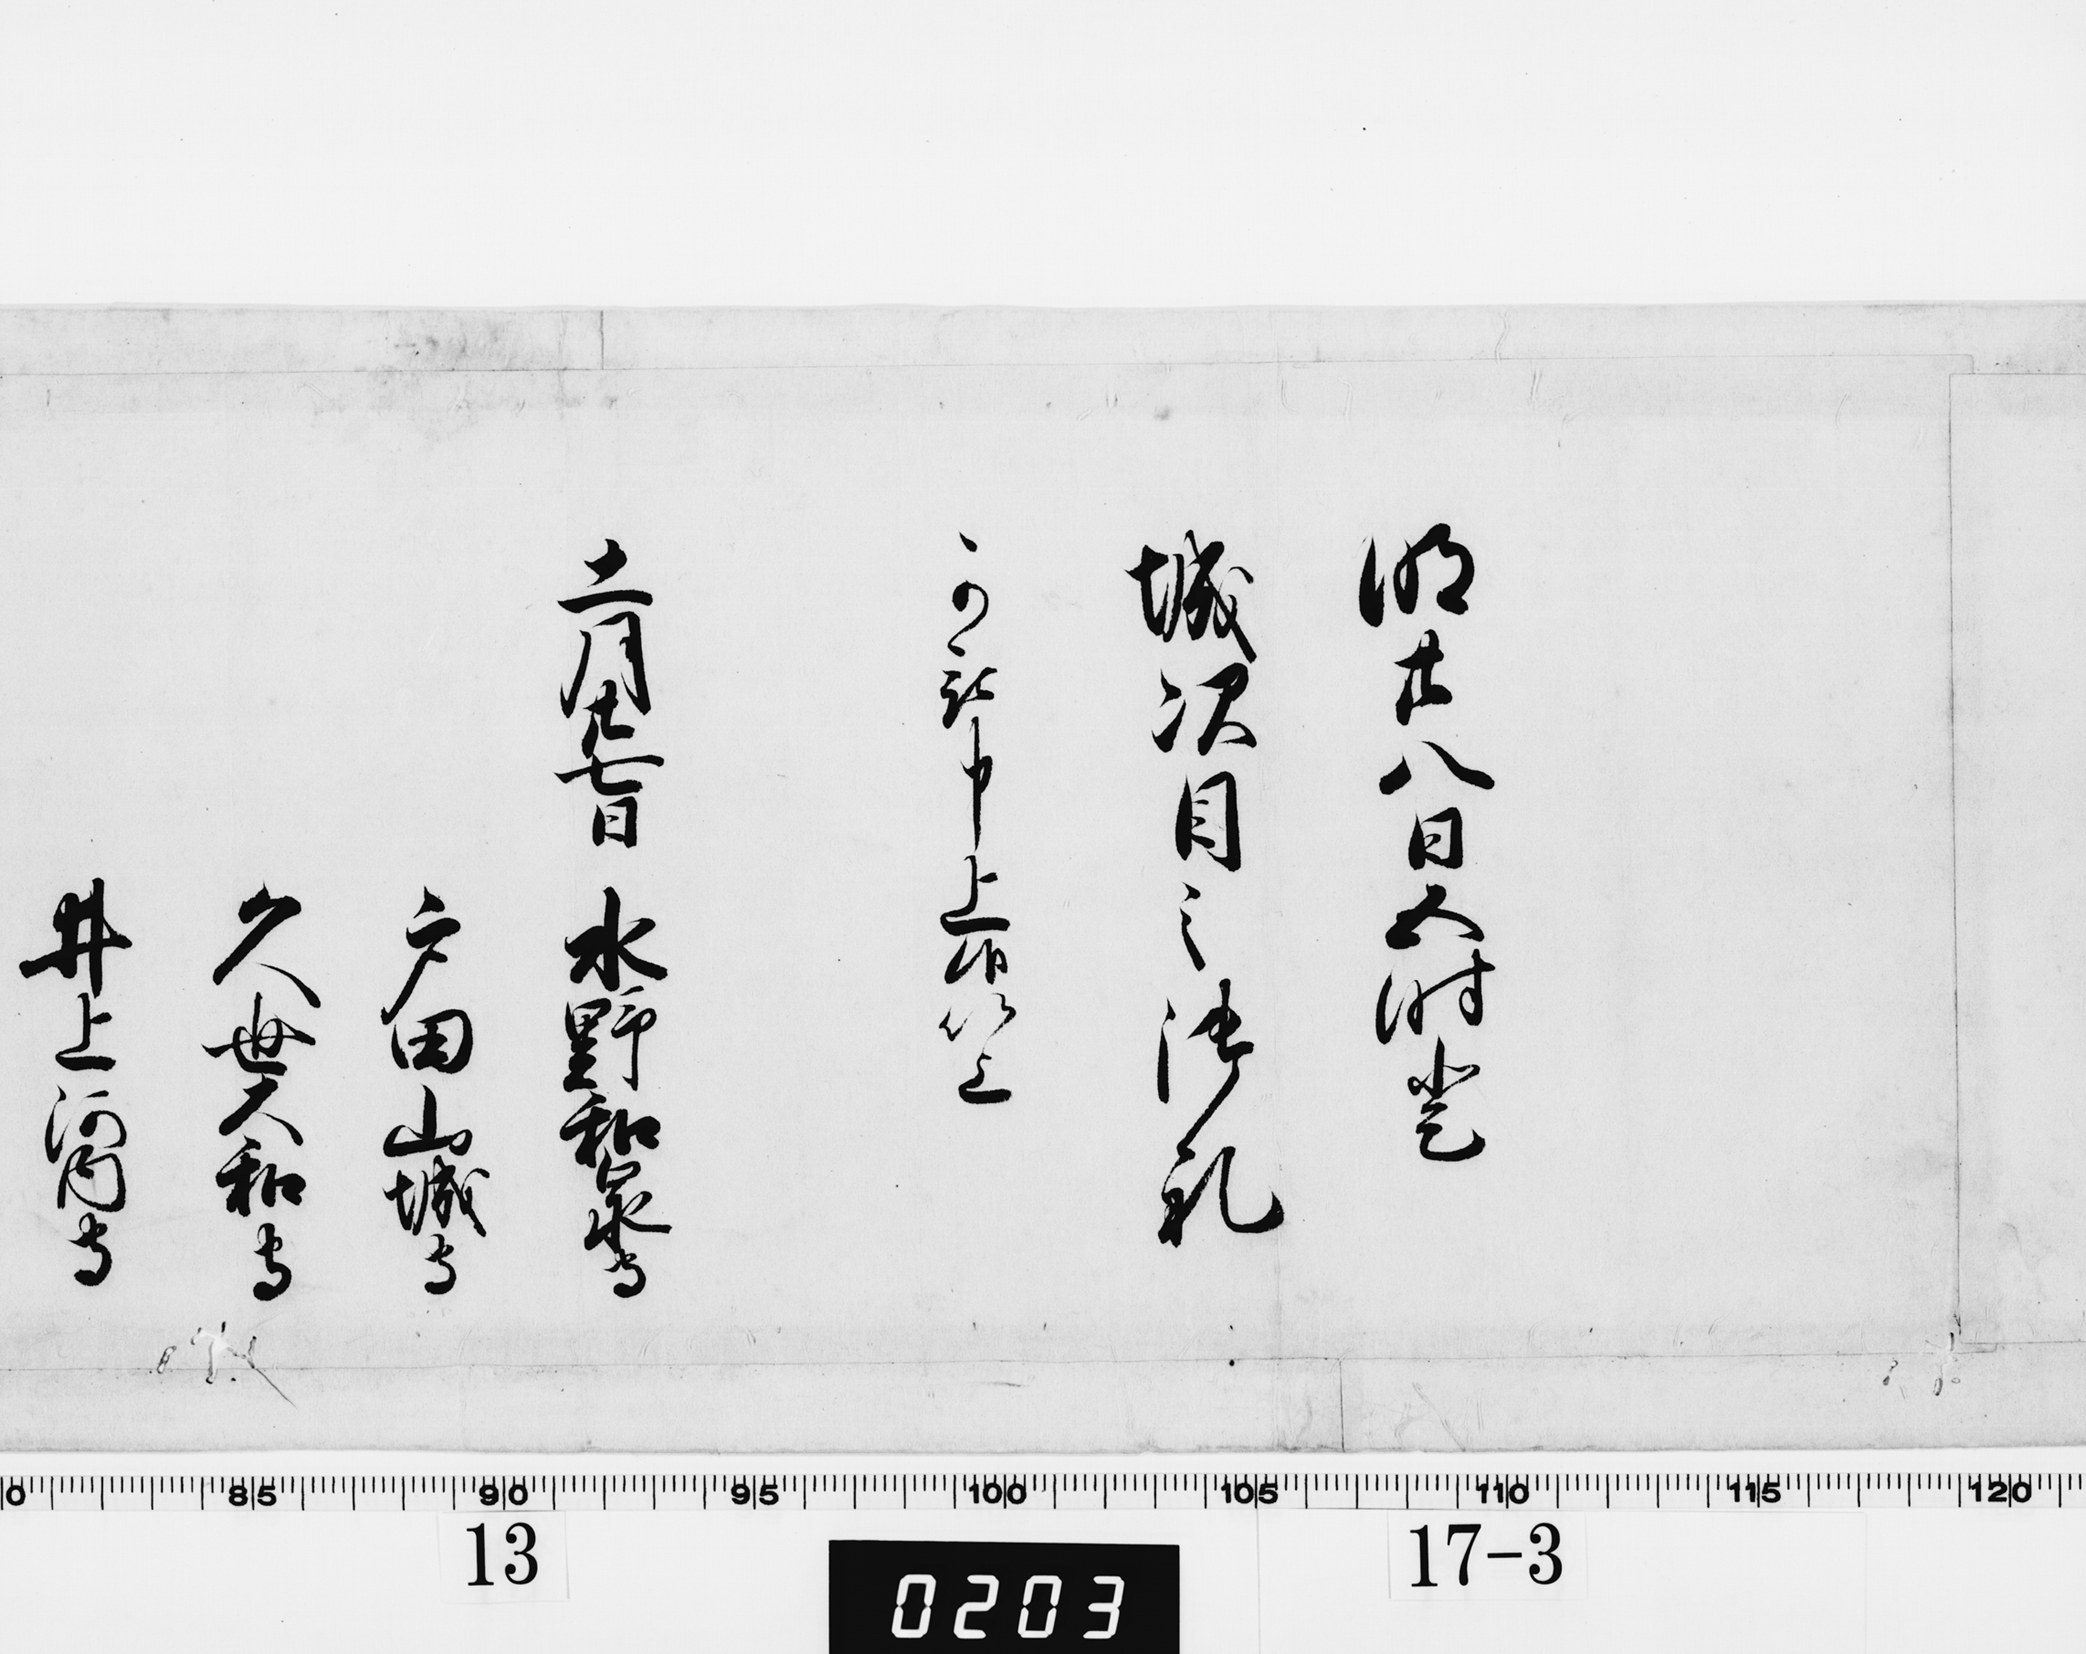 明廿八日五時登
城次目之御礼
可被申上候以上
十二月廿七日 水野和泉守
戸田山城守
久世大和守
井上河内守
0 85 90 95 100 105 110 115 120
13
0203
17-3